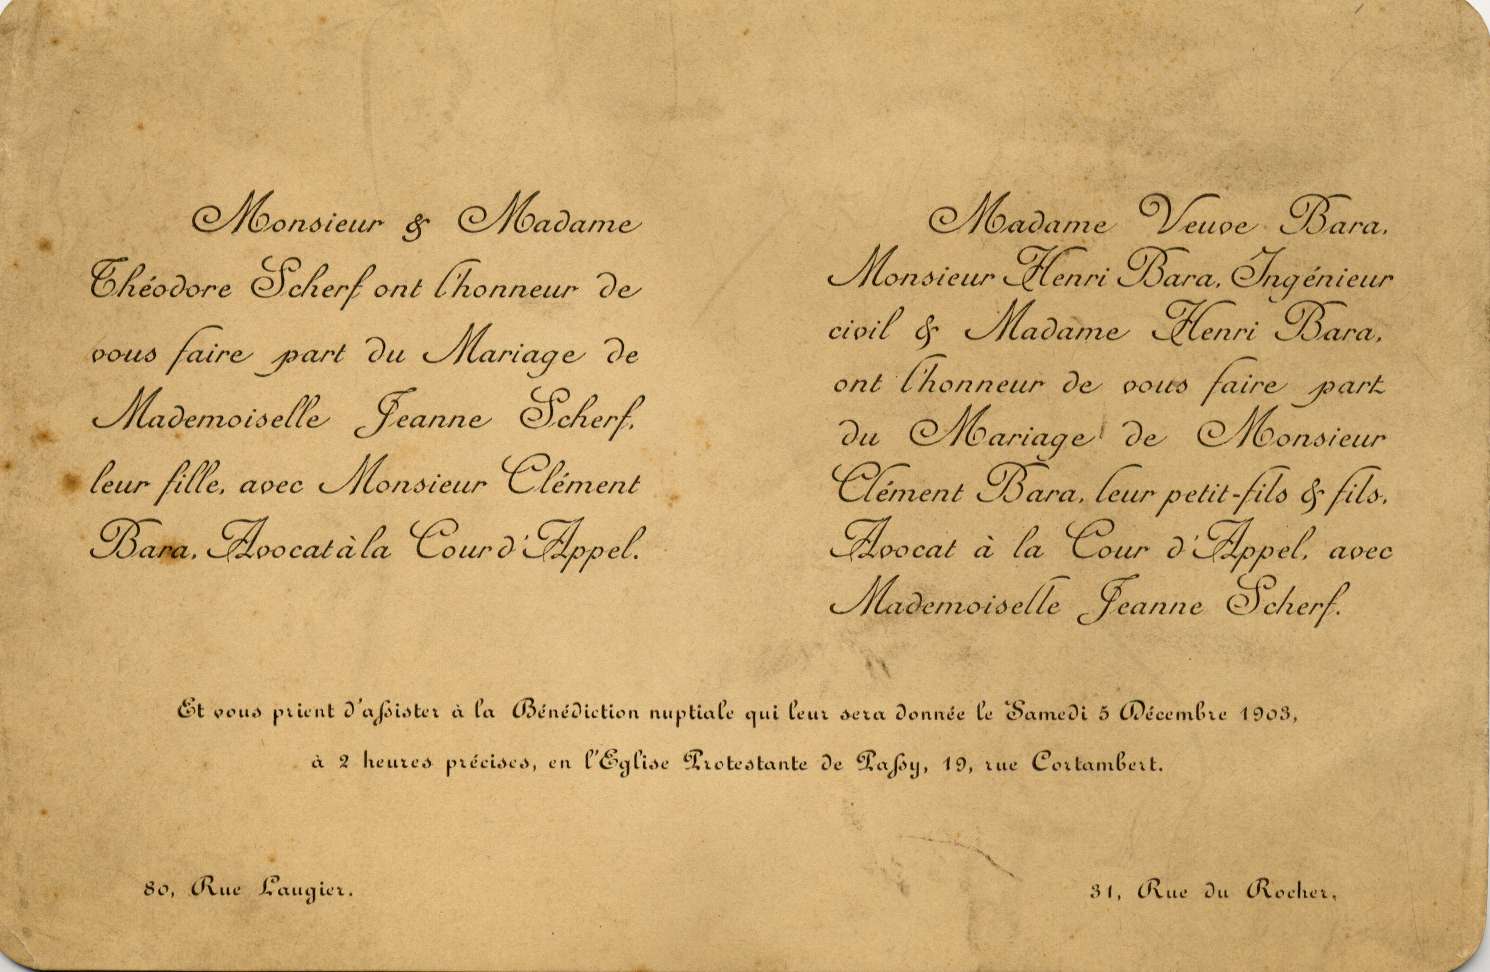 Monsieur & Madame
Théodore Scherf ont l'honneur de
vous faire part du Mariage de
Mademoiselle Jeanne Scherf,
leur fille, avec Monsieur Clément
Bara, Avocat à la Cour d'Appel.
Madame Veuve Bara,
Monsieur Henri Bara, Ingénieur
civil & Madame Henri Bara,
ont l'honneur de vous faire part
du Mariage de Monsieur
Clément Bara, leur petit-fils & fils,
Avocat à la Cour d'Appel, avec
Mademoiselle Jeanne Scherf.
Et vous prient d'aſsister à la Bénédiction nuptiale qui leur sera donnée le Samedi 5 Décembre 1903,
à 2 heures précises, en l'Eglise Protestante de Paſsy, 19, rue Cortambert.
80, Rue Laugier.
31, Rue du Rocher,